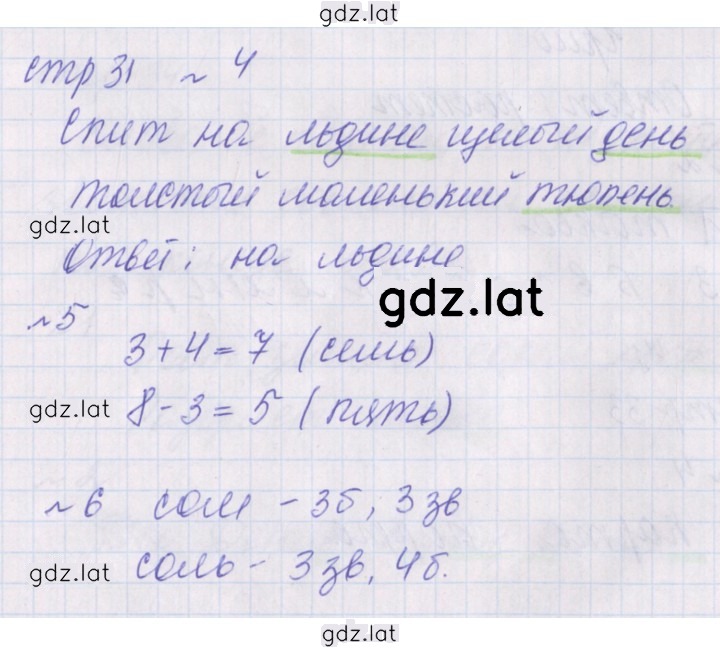 gdz.lat
стр 31 ~ 4
Спит на льдине целый день
толстый маленький тюлень.
gdz.lat
Ответ: на льдине
gdz.lat
~ 5
3 + 4 = 7 (семь)
gdz.lat 8 - 3 = 5 (пять)
~ 6 сом - 3б, 3 зв
gdz.lat соль - 3 зв, 4б.
gdz.lat